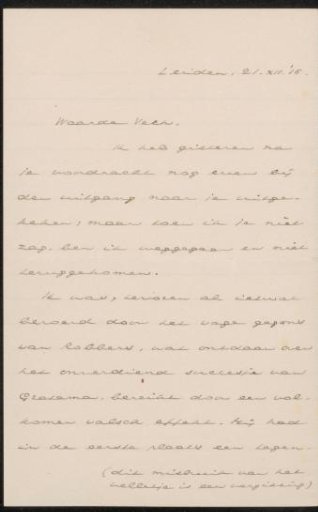 Leiden, 21.XII.'18.
Waarde Veth.
Ik heb gisteren na
je voordracht nog even bij
den uitgang naar je uitge-
keken; maar toen ik je niet
zag, ben ik weggegaan en niet
teruggekomen.
Ik was, tevoren al ietwat
beroerd door het vage
van Robbers,
het onverdiend succesje van
Grasama, bereikt door een vol-
komen valsch effekt. Hij had
in de eerste plaats een tegen-
(dit misbruik van het
velletje is een vergissing)